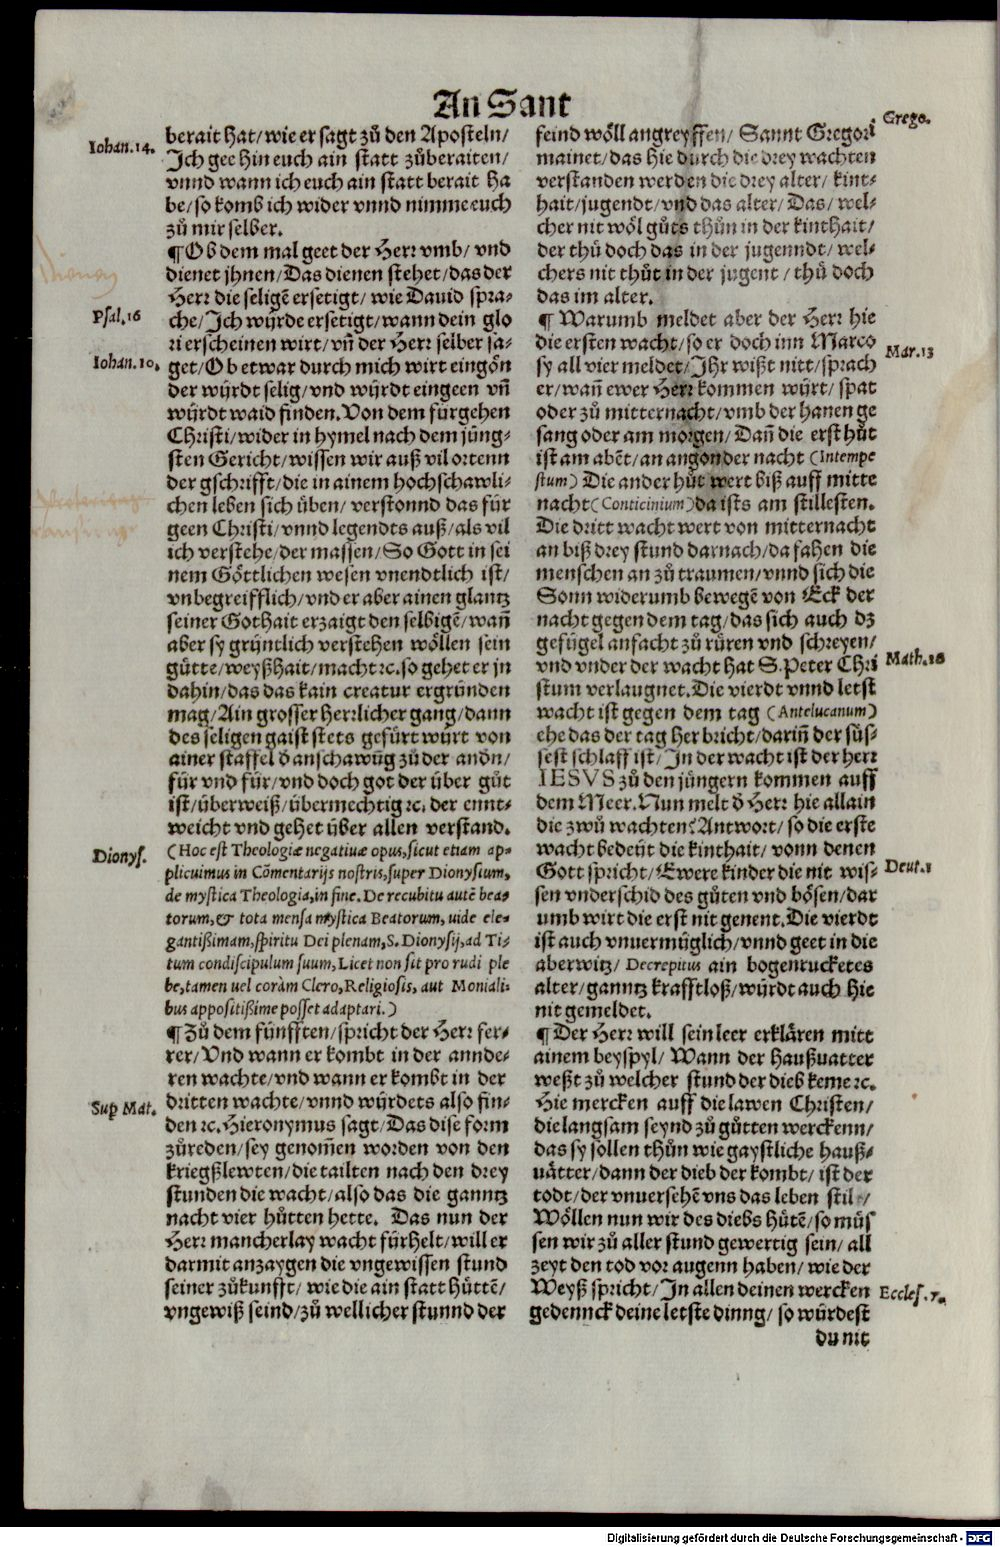 An Sant
Iohan. 14.
berait hat/ wie er sagt zů den Aposteln/
Jch gee hin euch ain statt zůberaiten/
vnnd wann ich euch ain statt berait ha
be/ so komb ich wider vnnd nimme euch
zů mir selber.
¶ Ob dem mal geet der Herr vmb/ vnd
dienet jhnen/ Das dienen stehet/ das der
Herr die seligē ersetigt/ wie Dauid spra-
Psal. 16
che/ Jch wyrde ersetigt/ wann dein glo
ri erscheinen wirt/ vñ der Herr selber sa-
Iohan. 10.
get/ Ob etwar durch mich wirt eingön
der wyrdt selig/ vnd wyrdt eingeen vñ
wyrdt waid finden. Von dem fürgehen
Christi/ wider in hymel nach dem jüng-
sten Gericht/ wissen wir auß vil ortenn
der gschrifft/ die in ainem hochschawli-
chen leben sich üben/ verstonnd das für
geen Christi/ vnnd legendts auß/ als vil
ich verstehe/ der massen/ So Gott in sei
nem Göttlichen wesen vnendtlich ist/
vnbegreifflich/ vnd er aber ainen glantz
seiner Gothait erzaigt den selbigē/ wañ
aber sy gryntlich verstehen wöllen sein
gůtte/ weyßhait/ macht ꝛc. so gehet er jn
dahin/ das das kain creatur ergründen
mag/ Ain grosser herrlicher gang/ dann
des seligen gaist stets gefürt wyrt von
ainer staffel ð anschawūg zů der andn̄/
für vnd für/ vnd doch got der über gůt
ist/ überweiß/ übermechtig ꝛc. der ennt-
weicht vnd gehet über allen verstand.
Dionys.
(Hoc est Theologiæ negatiuæ opus, sicut etiam ap-
plicuimus in Cōmentarijs nostris, super Dionysium,
de mystica Theologia, in fine. De recubitu autē bea-
torum, & tota mensa mystica Beatorum, uide ele-
gantißimam, spiritu Dei plenam, S. Dionysij, ad Ti-
tum condiscipulum suum, Licet non sit pro rudi ple
be, tamen uel coràm Clero, Religiosis, aut Moniali-
bus appositißime posset adaptari.)
¶ Zů dem fünfften/ spricht der Herr fer-
rer/ Vnd wann er kombt in der annde-
ren wachte/ vnd wann er kombt in der
Sup Mat.
dritten wachte/ vnnd wyrdets also fin-
den ꝛc. Hieronymus sagt/ Das dise form
zůreden/ sey genom̄en worden von den
kriegßlewten/ die tailten nach den drey
stunden die wacht/ also das die ganntz
nacht vier hůtten hette. Das nun der
Herr mancherlay wacht fürhelt/ will er
darmit anzaygen die vngewissen stund
seiner zůkunfft/ wie die ain statt hůttē/
vngewiß seind/ zů wellicher stunnd der
Grego.
feind wöll angreyffen/ Sannt Gregori
mainet/ das hie durch die drey wachten
verstanden werden die drey alter/ kint-
hait/ jugendt/ vnd das alter/ Das/ wel-
cher nit wöl gůts thůn in der kinthait/
der thů doch das in der jugenndt/ wel-
chers nit thůt in der jugent/ thů doch
das im alter.
¶ Warumb meldet aber der Herr hie
die ersten wacht/ so er doch inn Marco
Mar. 13
sy all vier meldet/ Jhr wißt nitt/ sprach
er/ wañ ewer Herr kommen wyrt/ spat
oder zů mitternacht/ vmb der hanen ge
sang oder am morgen/ Dañ die erst hůt
ist am abēt/ an angonder nacht (Intempe
stum) Die ander hůt wert biß auff mitte
nacht (Conticinium) da ists am stillesten.
Die dritt wacht wert von mitternacht
an biß drey stund darnach/ da fahen die
menschen an zů traumen/ vnnd sich die
Sonn widerumb bewegē von Eck der
nacht gegen dem tag/ das sich auch dz
gefügel anfacht zů rüren vnd schreyen/
Math. 26
vnd vnder der wacht hat S. Peter Chri
stum verlaugnet. Die vierdt vnnd letst
wacht ist gegen dem tag (Antelucanum)
ehe das der tag her bricht/ dariñ der süs-
sest schlaff ist/ Jn der wacht ist der herr
IESVS zů den jüngern kommen auff
dem Meer. Nun melt ð Herr hie allain
die zwů wachten? Antwort/ so die erste
wacht bedeyt die kinthait/ vonn denen
Deut. 1
Gott spricht/ Ewere kinder die nit wis-
sen vnderschid des gůten vnd bösen/ dar
umb wirt die erst nit genent. Die vierdt
ist auch vnuermüglich/ vnnd geet in die
aberwitz/ Decrepitus ain bogenrucketes
alter/ ganntz krafftloß/ würdt auch hie
nit gemeldet.
¶ Der Herr will sein leer erklären mitt
ainem beyspyl/ Wann der haußuatter
weßt zů welcher stund der dieb keme ꝛc.
Hie mercken auff die lawen Christen/
die langsam seynd zů gůtten werckenn/
das sy sollen thůn wie gaystliche hauß-
uätter/ dann der dieb der kombt/ ist der
todt/ der vnuersehē vns das leben stil/
Wöllen nun wir des diebs hůtē/ so müs
sen wir zů aller stund gewertig sein/ all
zeyt den tod vor augenn haben/ wie der
Eccles. 7.
Weyß spricht/ Jn allen deinen wercken
gedennck deine letste dinng/ so würdest
du nit
Digitalisierung gefördert durch die Deutsche Forschungsgemeinschaft - DFG